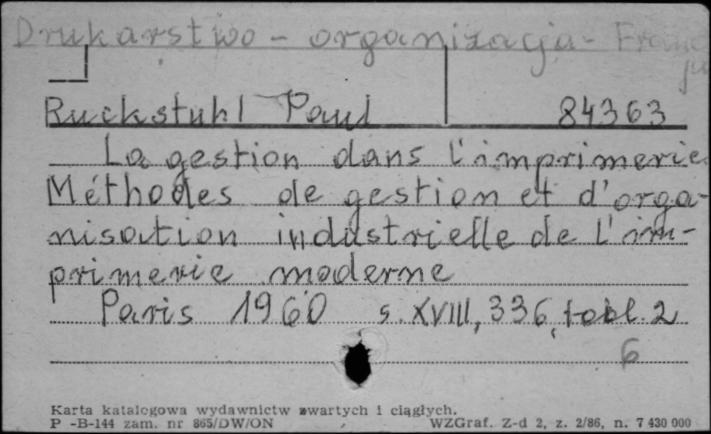 Drukarstwo - organizacja - Francja
Ruckstuhl Paul 84363
La gestion dans l'imprimerie.
Méthodes de gestion et d'orga-
nisation industrielle de l'im-
primerie moderne
Paris 1960 s. XVIII, 336, tabl. 2
6
Karta katalogowa wydawnictw zwartych i ciągłych.
P -B-144 zam. nr 865/DW/ON WZGraf. Z-d 2, z. 2/86, n. 7 430 000